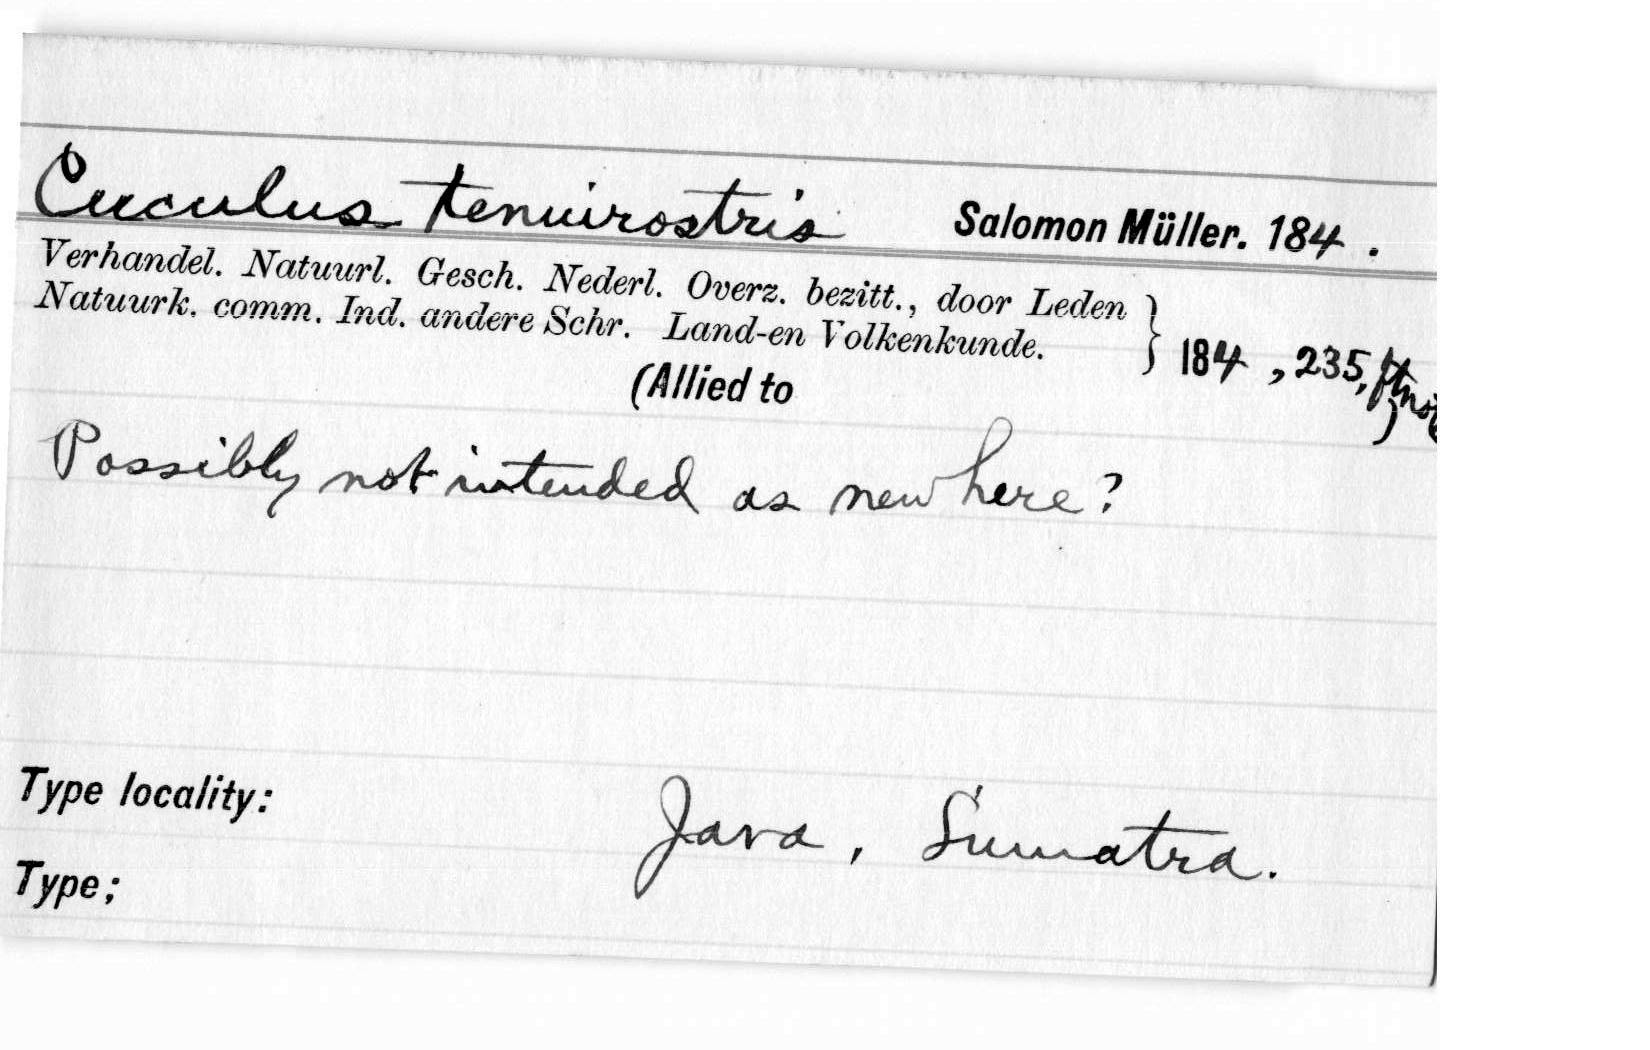 Cuculus tenuirostris Salomon Müller. 184 .
Verhandel. Natuurl. Gesch. Nederl. Overz. bezitt., door Leden
Natuurk. comm. Ind. andere Schr. Land-en Volkenkunde. } 184 , 235,
(Allied to )
Possibly not intended as new here?
Type locality: Java, Sumatra.
Type;